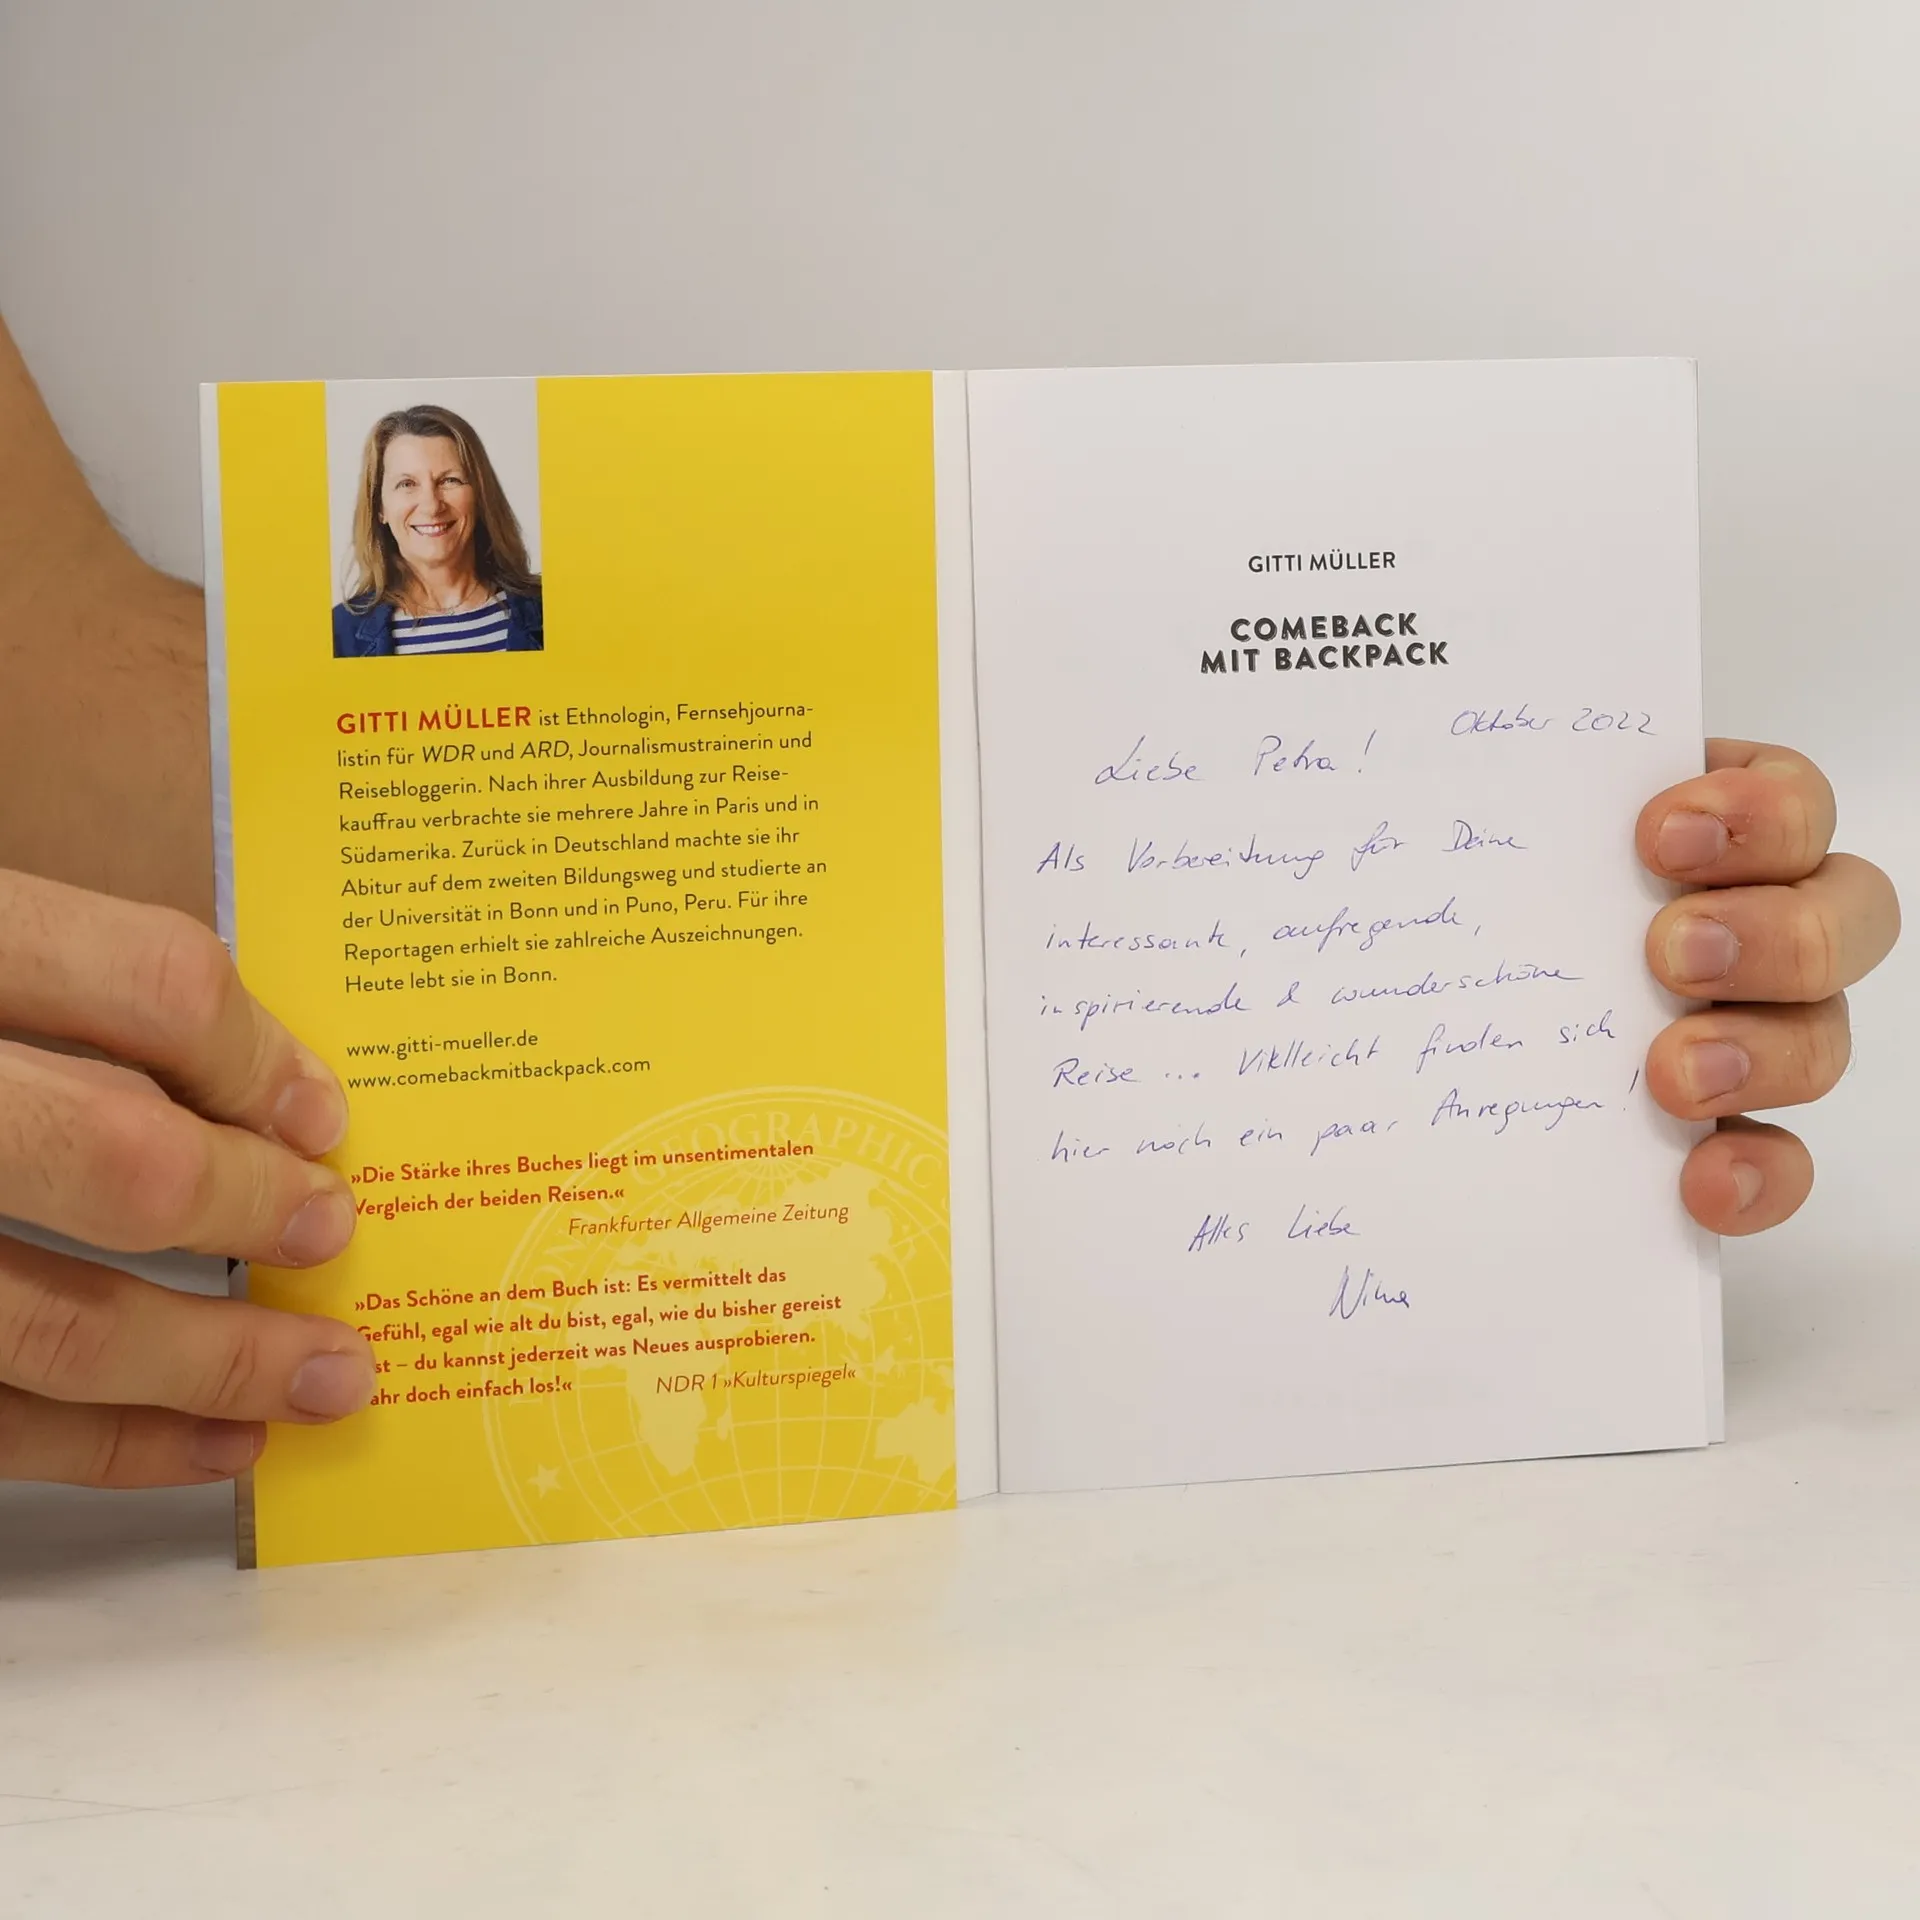 GITTI MÜLLER ist Ethnologin, Fernsehjourna-
listin für WDR und ARD, Journalismustrainerin und
Reisebloggerin. Nach ihrer Ausbildung zur Reise-
kauffrau verbrachte sie mehrere Jahre in Paris und in
Südamerika. Zurück in Deutschland machte sie ihr
Abitur auf dem zweiten Bildungsweg und studierte an
der Universität in Bonn und in Puno, Peru. Für ihre
Reportagen erhielt sie zahlreiche Auszeichnungen.
Heute lebt sie in Bonn.
www.gitti-mueller.de
www.comebackmitbackpack.com
»Die Stärke ihres Buches liegt im unsentimentalen
Vergleich der beiden Reisen.«
Frankfurter Allgemeine Zeitung
»Das Schöne an dem Buch ist: Es vermittelt das
Gefühl, egal wie alt du bist, egal, wie du bisher gereist
st – du kannst jederzeit was Neues ausprobieren.
ahr doch einfach los!«
NDR 1 »Kulturspiegel«
GEOGRAPHIC
GITTI MÜLLER
COMEBACK
MIT BACKPACK
Oktober 2022
Liebe Petra!
Als Vorbereitung für Deine
interessante, aufregende,
inspirierende & wunderschöne
Reise ... Vielleicht finden sich
hier noch ein paar Anregungen!
Alles Liebe